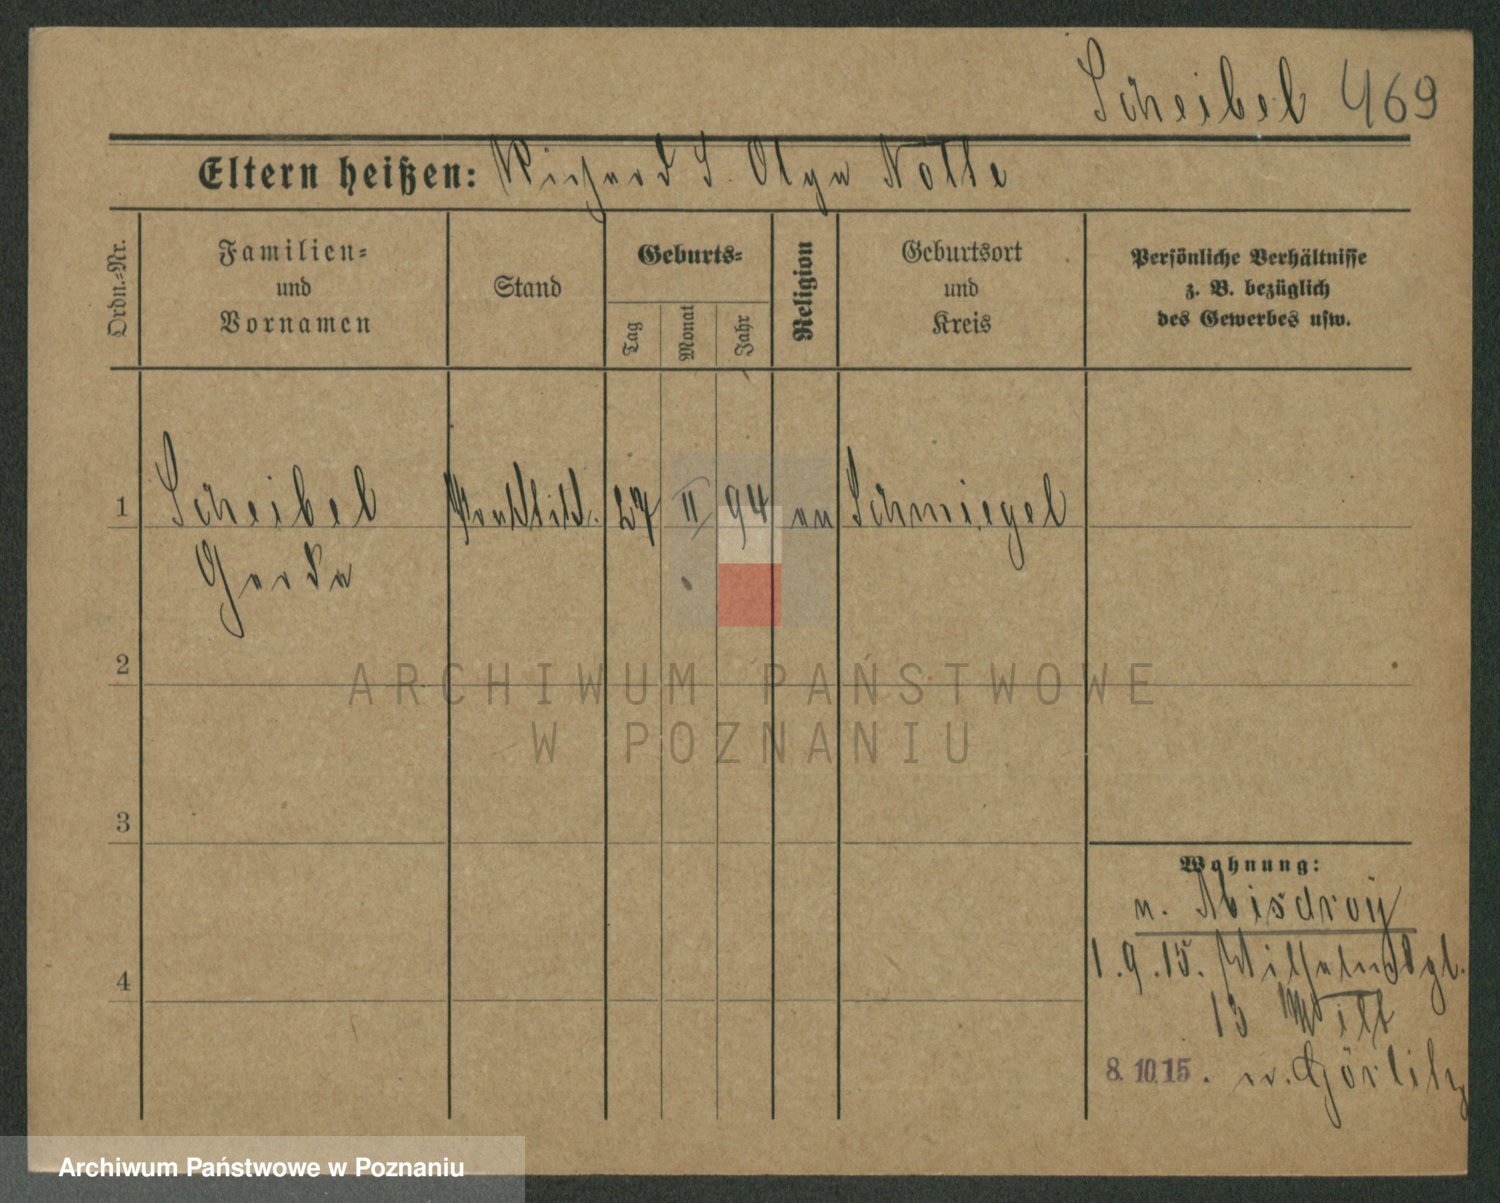 Scheibel 469
Eltern heißen: Richard S. Olga Nolle
Ordn.-Nr.
Familien-
und
Vornamen
Stand
Geburts-
Tag
Monat
Jahr
Religion
Geburtsort
und
Kreis
Persönliche Verhältnisse
z. B. bezüglich
des Gewerbes usw.
1 Scheibel 27 II 94 ev Schmiegel
Gerda
2
ARCHIWUM PAŃSTWOWE
W POZNANIU
3
4
Wohnung:
n. Misdroy
1.9.15.
13
8.10.15. n. Görlitz
Archiwum Państwowe w Poznaniu